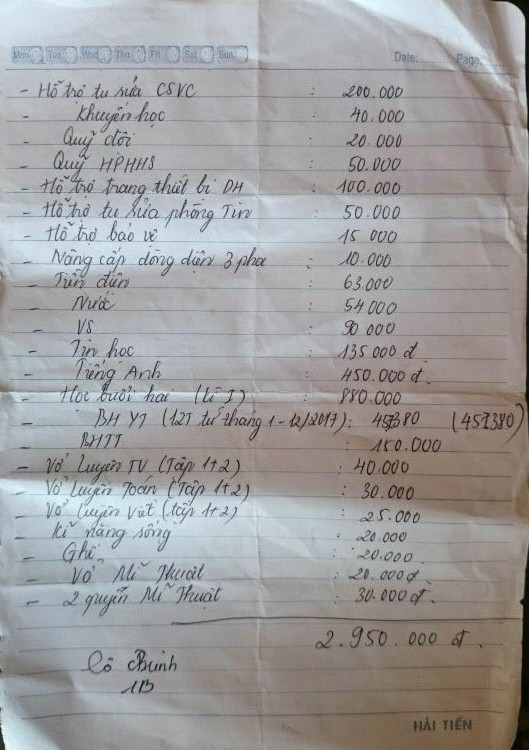 Mon Tue Wed Thu Fri Sat Sun Date:...... Page:
- Hỗ trợ tu sửa CSVC : 200.000
- Khuyến học : 40.000
- Quỹ đội : 20.000
- Quỹ HPHHS : 50.000
- Hỗ trợ trang thiết bị DH : 100.000
- Hỗ trợ tu sửa phòng Tin : 50.000
- Hỗ trợ bảo vệ : 15 000
- Nâng cấp dòng điện 3 pha : 10.000
- Tiền điện : 63.000
- Nước : 54000
- VS : 90 000
- Tin học : 135 000 đ.
- Tiếng Anh : 450.000 đ.
- Học buổi hai (kì I) : 880.000
- BH YT (12T từ tháng 1-12/2017): (457380)
- BHTT : 150.000
- Vở luyện TV (Tập 1+2) : 40.000
- Vở luyện Toán (Tập 1+2) : 30.000
- Vở luyện Viết (tập 1+2) : 25.000
- Kĩ năng sống : 20.000
- Ghế : 20.000
- Vở Mĩ Thuật : 20.000đ.
- 2 quyển Mĩ Thuật : 30.000đ.
2.950.000 đ.
Cô
1B
HẢI TIẾN